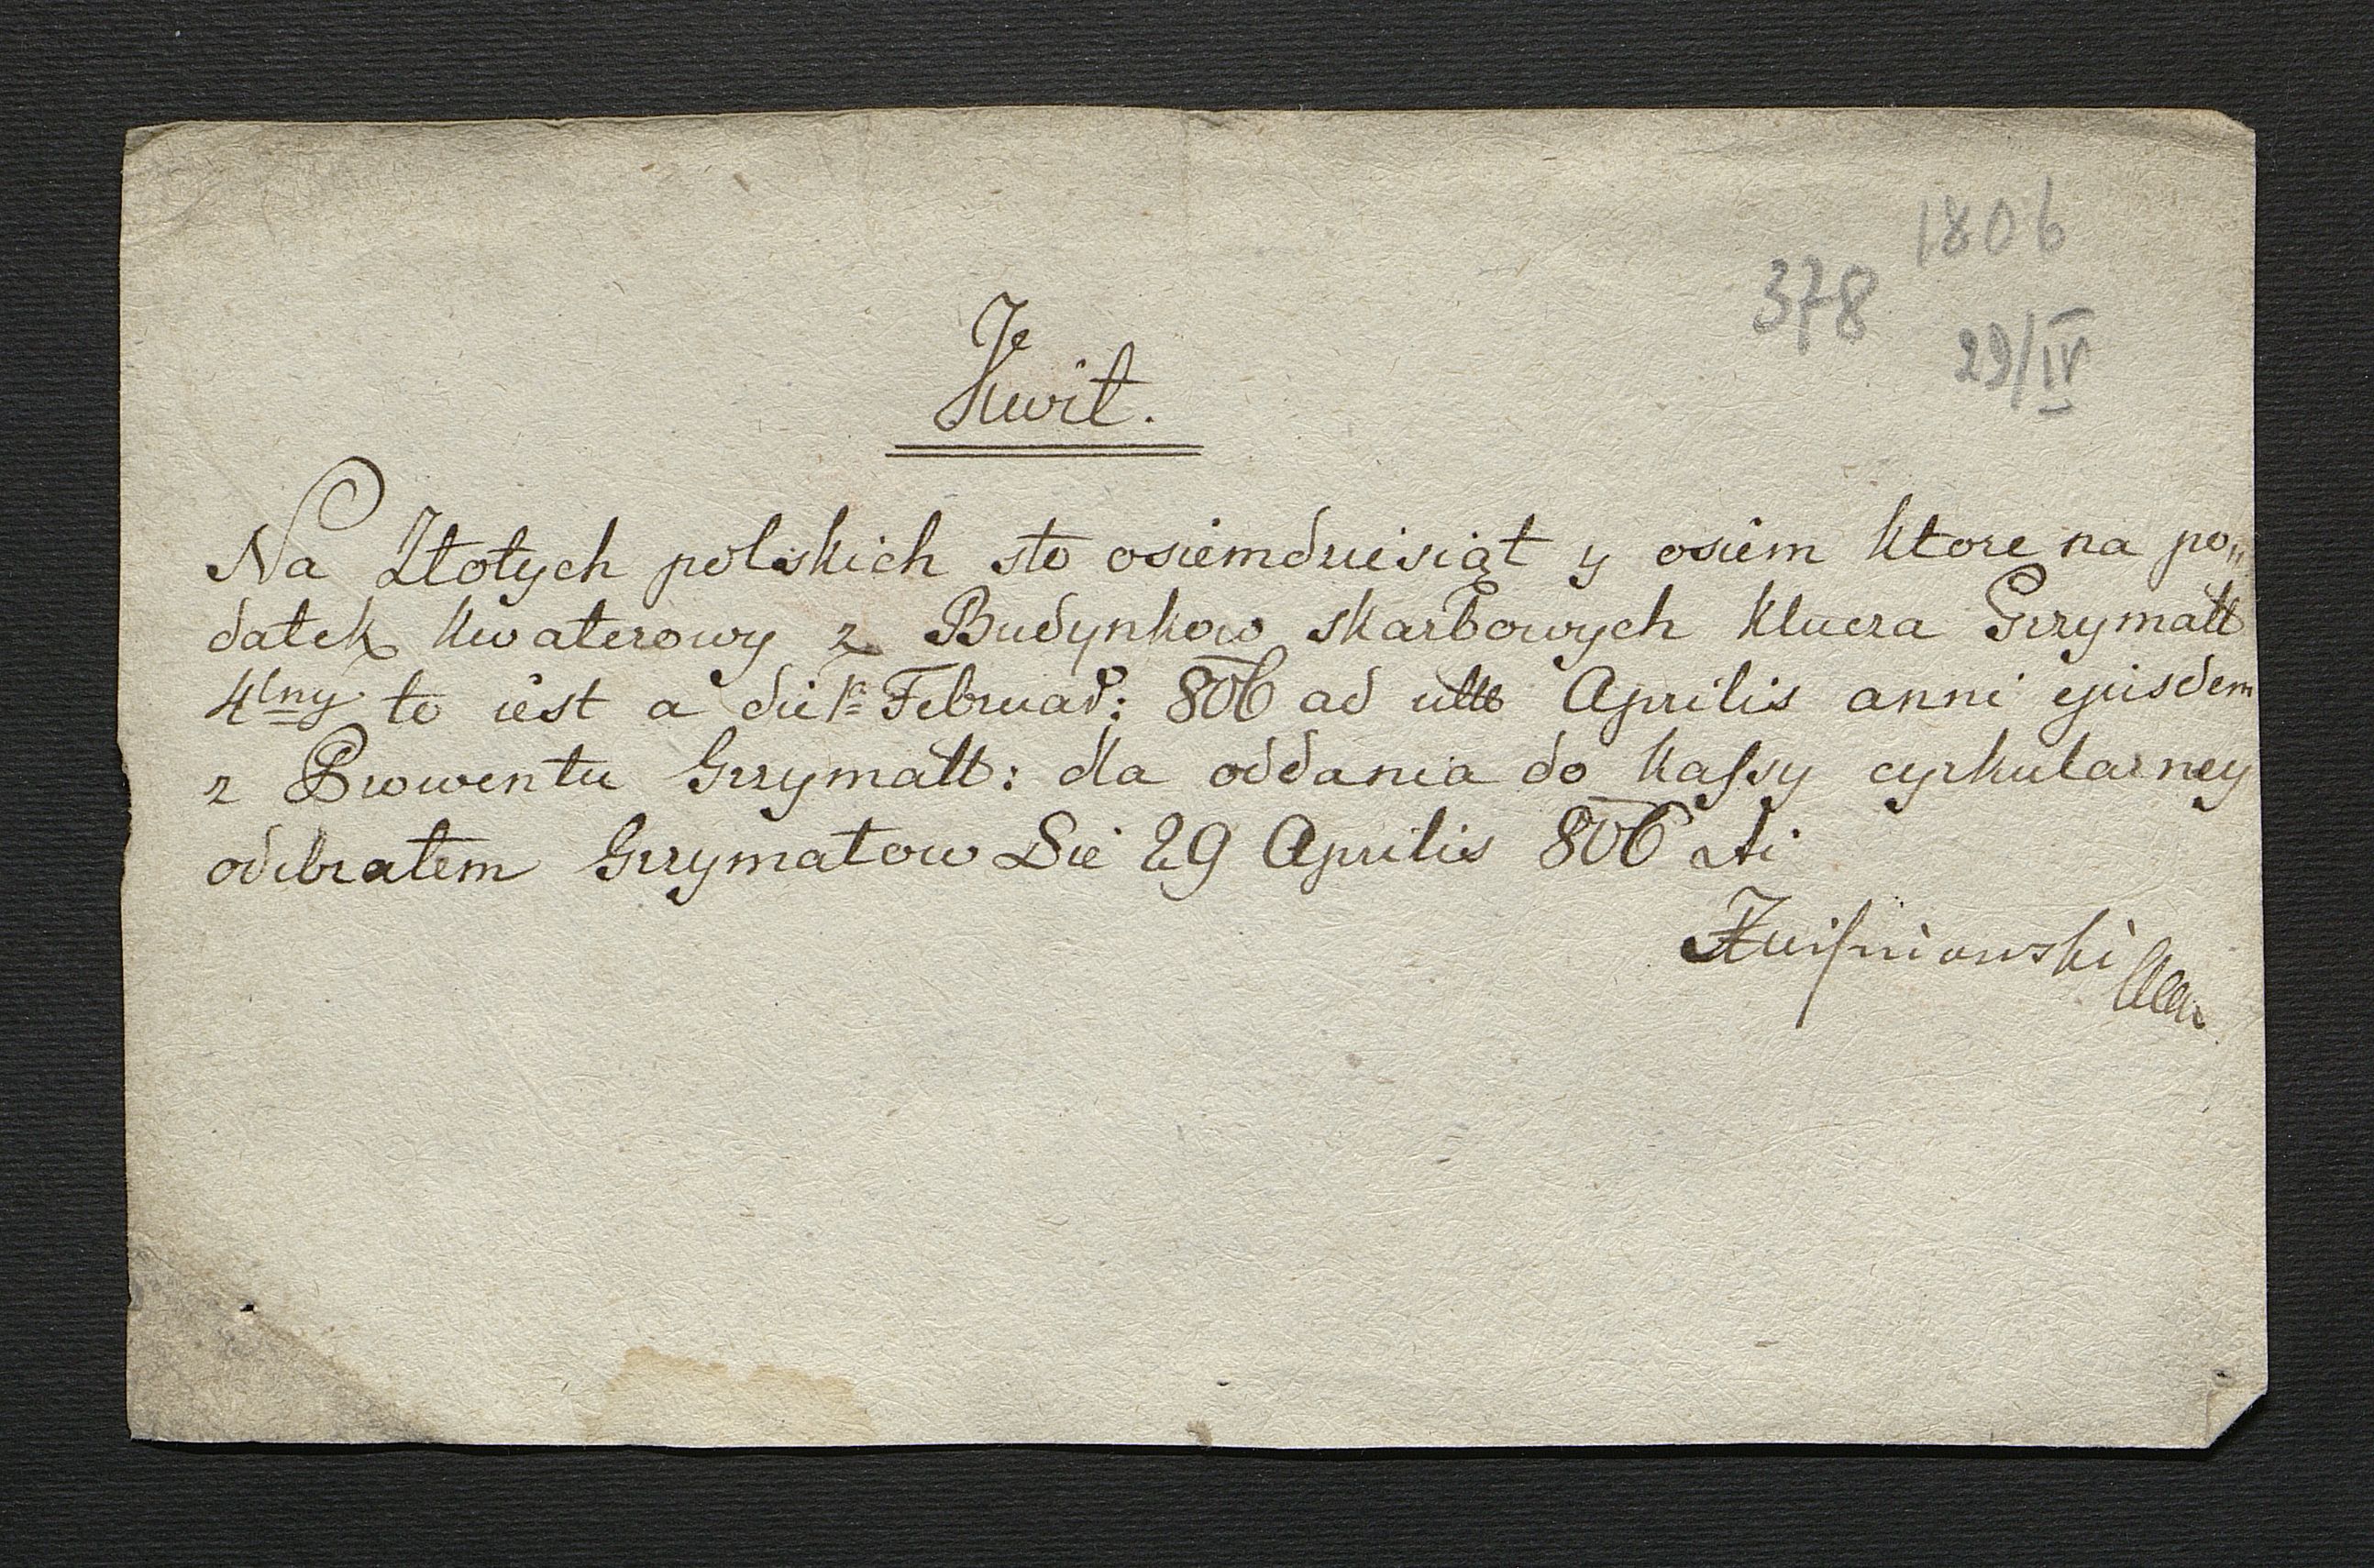 1806
378
29/IV
Kwit.
Na Złotych polskich sto osiemdziesiąt y osiem ktore na po„
datek kwaterowy z Budynkow skarbowych klucza Grzymałł
4lny to iest a die 1a Februar: 806 ad ulto Aprilis anni ejusdem
z Prowentu Grzymałł: dla oddania do kassy cyrkularney
odebrałem Grzymałow Die 29 Aprilis 806